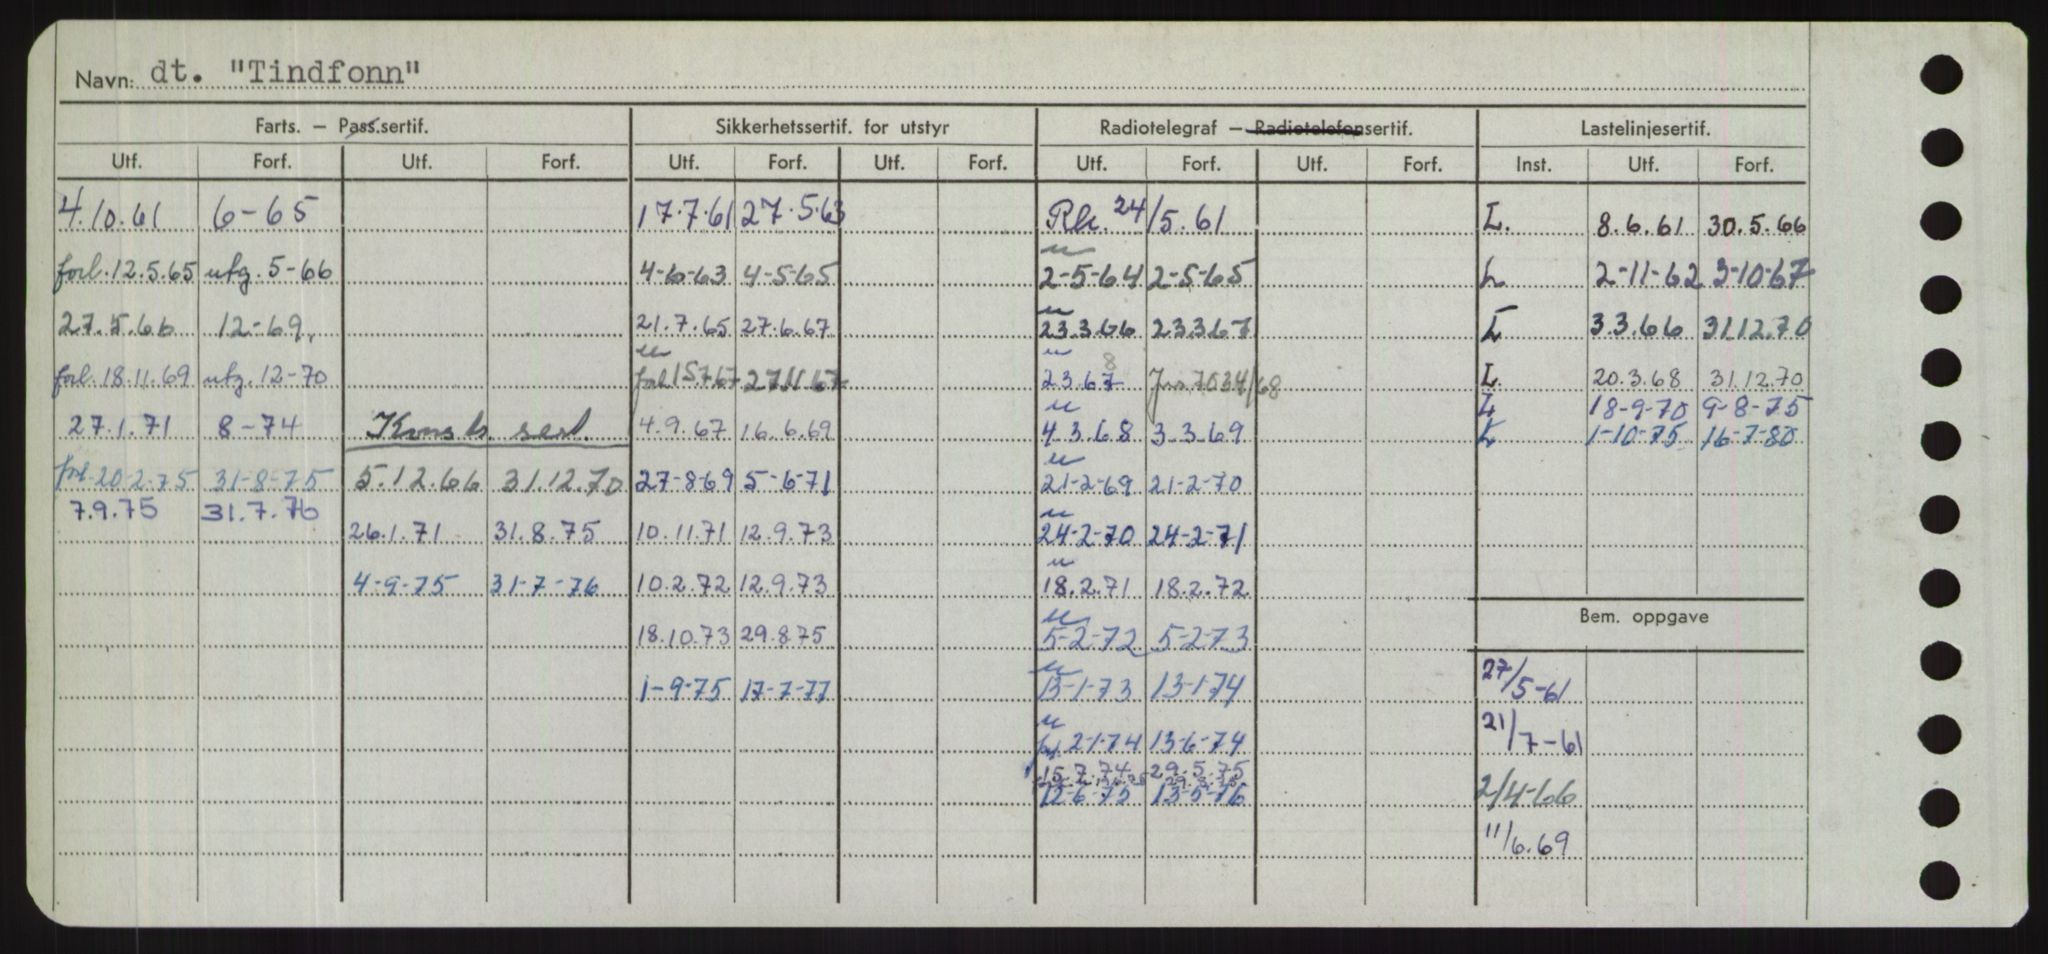 Navn: dt. "Tindfonn"
Farts. — Pass.sertif. Sikkerhetssertif. for utstyr Radiotelegraf — Radiotelefonsertif. Lastelinjesertif.
Utf. Forf. Utf. Forf. Utf. Forf. Utf. Forf. Utf. Forf. Utf. Forf. Inst. Utf. Forf.
4.10.61 6-65 17.7.61 27.5.63 24/5.61 L. 8.6.61 30.5.66
forl.12.5.65 utg.5-66 4-6-63 4-5-65 2-5-64 2-5-65 L 2-11-62 3-10-67
27.5.66 12-69. 21.7.65 27.6.67 23.3.66 23.3.67 L 3.3.66 31.12.70
forl.18.11.69 utg.12-70 forl 15.7.67 27.11.67 23.67 8 L. 20.3.68 31.12.70
L 18-9-70 9-8-75
27.1.71 8-74 Konstr. sert. 4.9.67 16.6.69 4.3.68 3.3.69 L 1-10-75 16-7-80
forl-20-2-75 31-8-75 5.12.66 31.12.70 27-8-69 5-6-71 21-2-69 21-2-70
7.9.75 31.7.76
26.1.71 31.8.75 10.11.71 12.9.73 24-2-70 24-2-71
4-9-75 31-7-76 10.2.72 12.9.73 18.2.71 18.2.72
Bem. oppgave
18.10.73 29.8.75 5-2-72 5-2-73
1-9-75 17-7-77 13-1-73 13-1-74 27/5-61
forl. 2-1-74 13-6-74 21/7-61
15.7.74 29.5.75
12-6-75 13-5-76 2/4-66
11/6.69